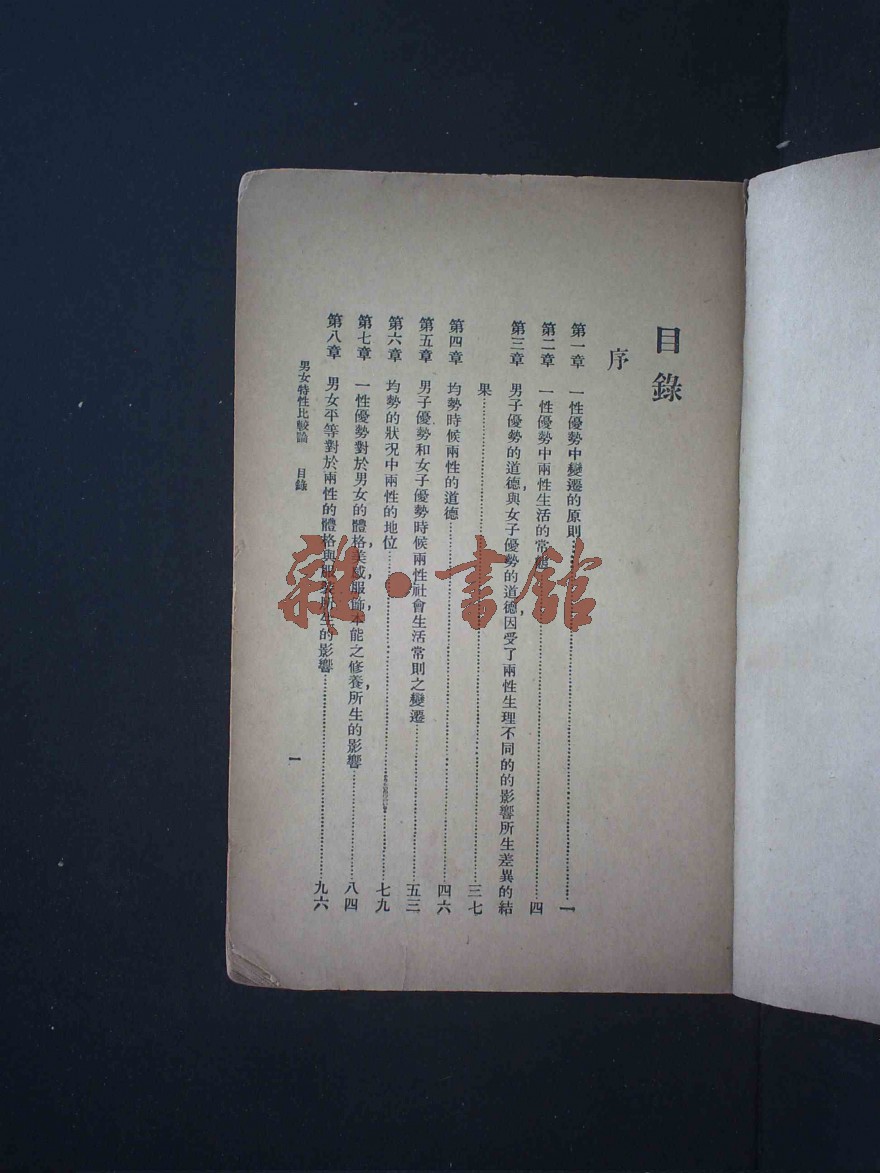 目錄
序
第一章 一性優勢中變遷的原則……一
第二章 一性優勢中兩性生活的常態……四
第三章 男子優勢的道德，與女子優勢的道德，因受了兩性生理不同的的影響所生差異的結
果……三七
第四章 均勢時候兩性的道德……四六
第五章 男子優勢和女子優勢時候兩性社會生活常則之變遷……五三
第六章 均勢的狀況中兩性的地位……七九
第七章 一性優勢對於男女的體格，美感，服飾，本能之修養，所生的影響……八四
第八章 男女平等對於兩性的體格與服裝所生的影響……九六
男女特性比較論 目錄
一
雜·書館